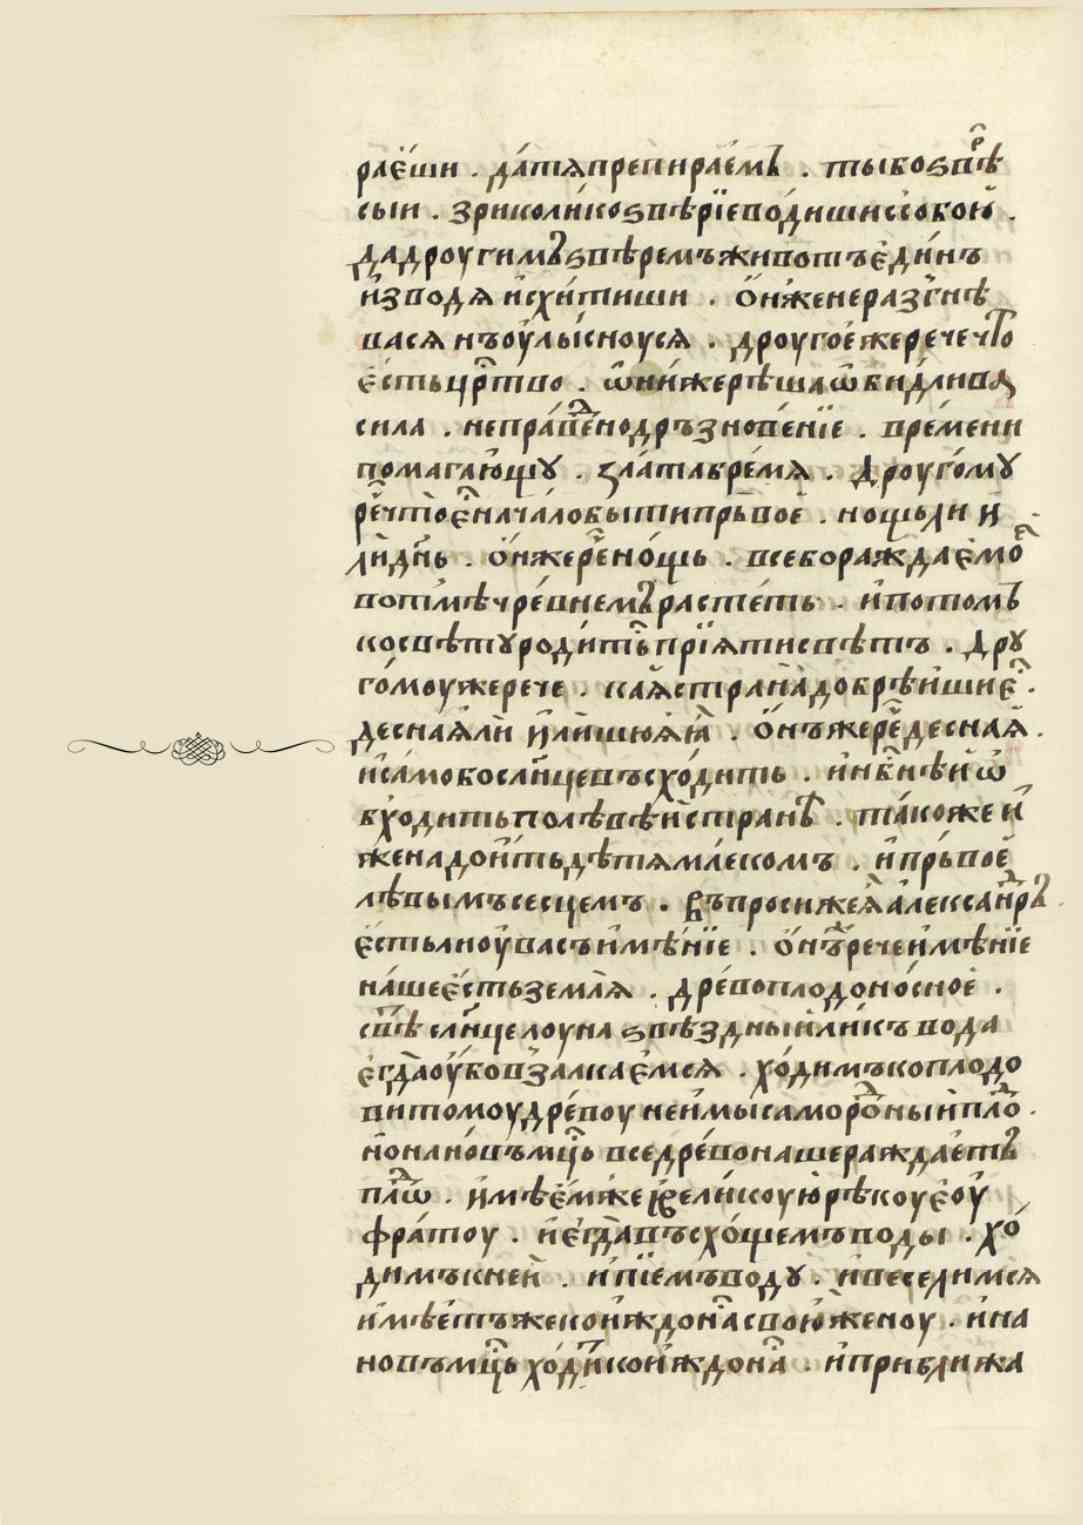 раёши . да́тѧпрепирае́мъ . тыбоѕвѣⷬ҇
сыи . зриколи́коѕвѣрїеводишиссобою .
дадроугимъѕвѣремъживотъеди́нъ
и҆зводѧ и҆схи́тиши . ѻ҆́нже неразгнѣ
васѧ нъоулы́сноусѧ . дроугоеже рече что
е҆стьцрⷭ҇тво . ѡ҆ни́жерѣшаѡ҆бидлива
сила . непра́веⷣнодръзнове́нїе . вре́мени
помага́ющꙋ . зла́табре́мѧ . дроуго́мꙋ
реⷱ҇чтоеⷭ҇нача́лобытипръвое . нощьли и҆
ли́днь . ѻ҆́нжереⷱ҇но́щь . всеборажда́емоⷭ҇
вотмѣчре́внемърасте́ть . и҆потомъ
косвѣтꙋроди́тсѧпрїѧ́тисвѣтъ . дрꙋ
го́моужерече . каѧстрана̀добрѣишиеⷭ҇ .
деснаѧли и҆лишюѧѧ . ѻ҆́нъжереⷱ҇десна́ѧ .
и҆самобослн҃цевъсхо́дить . и҆нбⷭ҇нѣиѡ
бхо́дитьполѣвѣистранѣ . та́коже и҆
жена̀дои́тьдѣ́тѧмлеко́мъ . и҆прьвое
лѣвымъсесцемъ . въпросижеѧа҆леѯанⷣръ .
е҆стьлиоу҆васъимѣ́нїе . ѻ҆́нъжеречеимѣнїе
на́шеестьземлѧ̀ . дре́воплодоно́сное .
свѣⷮ слн҃целоуна ѕвѣздныйликъ вода
е҆гда̀оу҆бовзалка́емсѧ . хо́димъкоплодо
витомоудре́воу неи҆мысаморо́ⷣныйплоⷣ .
но́нано́въмцⷭ҇ь вседре́вонашеражда́етъ
плѡⷣ . и҆мѣе́мже ивели́коуюрѣкоуеоу
фра́тоу . и҆е҆гда̀въсхо́щемъводы . хо́
димъкней . и҆пїемъводꙋ . и҆весели́мсѧ
и҆мѣетъжеко́иждонасвоюженоу . и҆на
новъмцⷭ҇ь хо́диткои́ждона . и҆приближа